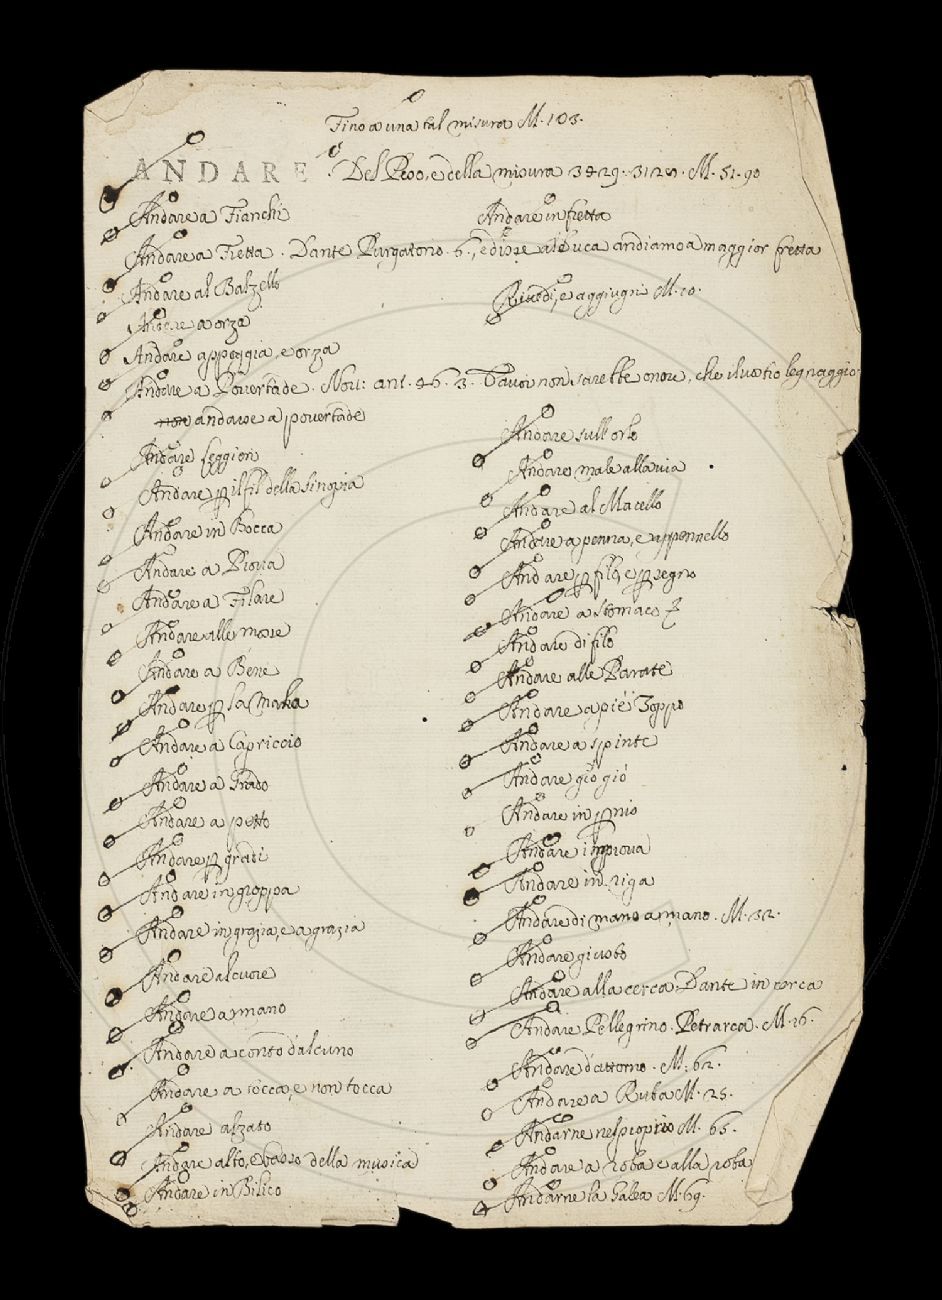 Fino a una tal misura M. 103.
ANDARE. Del Peso, e della misura 3829. 3128. M. 51. 90
Andare a Fianchi
Andare in fretta
Andare a Fretta. Dante Purgatorio. 6., e dire al Duca andiamo a maggior fretta
Andare al Balzello
Rivedi, e aggiugni M. 10.
Andare a orza
Andare a poggia, e orza
Andare a Povertade. ant. 46. 3. onore, che il vostro legnaggio
non andare a povertade
Andare seggion
Andare ꝑ il fil della sinopia
Andare in Bocca
Andare a
Andare a Filare
Andare alle more
Andare a Bene
Andare ꝑ la Maha
Andare a Capriccio
Andare a Grado
Andare a petto
Andare ꝑ gradi
Andare in groppa
Andare in grazia, e a grazia
Andare al cuore
Andare a mano
Andare a conto d'alcuno
Andare a tocca, e non tocca
Andare alzato
Andare alto, e basso della musica
Andare in Bilico
Andare sull'orlo
Andare male alla via
Andare al Macello
Andare a penna, e appennello
Andare ꝑ filo, e ꝑ segno
Andare a stomaco
Andare di filo
Andare alle Parate
Andare a piè Zoppo
Andare a spinte
Andare giò giò
Andare in ꝑmio
Andare in pruova
Andare in riga
Andare di mano a mano. M. 32.
Andare
Andare alla cerca. Dante in cerca
Andare Pellegrino. Petrarca. M. 26.
Andare d'attorno. M. 62.
Andare a Ruba M. 25.
Andarne nel proprio M. 65.
Andare a roba e alla roba
Andarne la Galea M. 69.